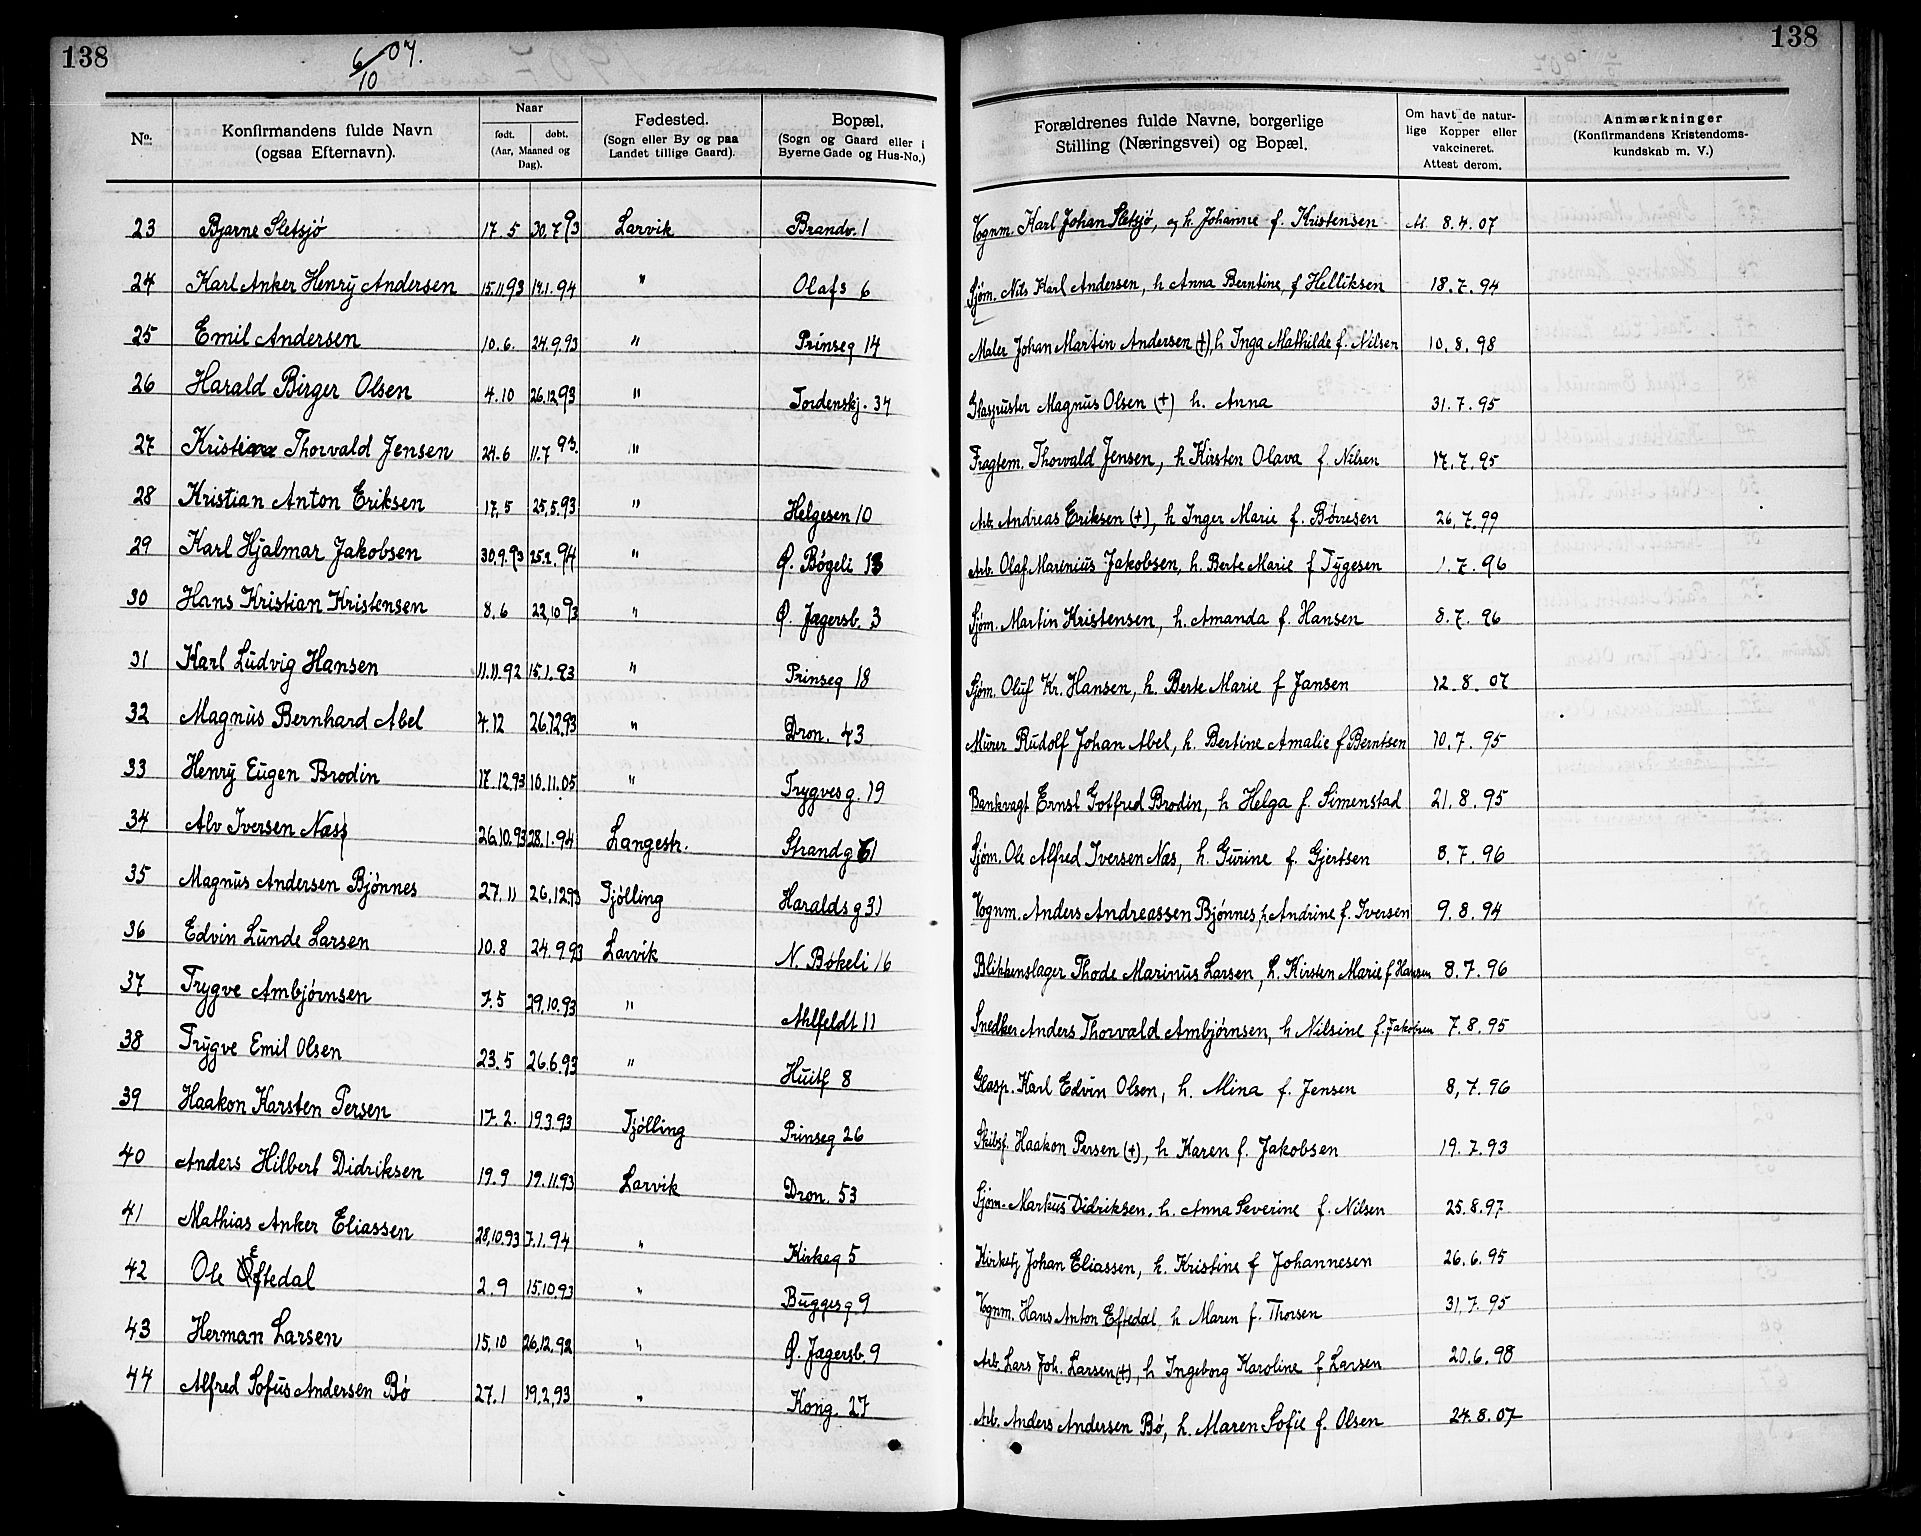 138
6/10 07.
138
No.
Konfirmandens fulde Navn
(ogsaa Efternavn).
Naar
født.
døbt.
(Aar, Maaned og
Dag).
Fødested.
(Sogn eller By og paa
Landet tillige Gaard).
Bopæl.
(Sogn og Gaard eller i
Byerne Gade og Hus-No.)
Forældrenes fulde Navne, borgerlige
Stilling (Næringsvei) og Bopæl.
Om havt de natur-
lige Kopper eller
vakcineret.
Attest derom.
Anmærkninger
(Konfirmandens Kristendoms-
kundskab m. V.)
23 Bjarne Sletsjö 17.5 30.7 93 Larvik Brandv. 1 Vognm. Karl Johan Sletsjö, og h. Johanne f. Kristensen 8.4.07
24 Karl Anker Henry Andersen 15.11 93 14.1.94 " Olafs 6 Sjöm. Nils Karl Andersen, h Anna Berntine, f Helliksen 18.7.94
25 Emil Andersen 10.6. 24.9.93 " Prinseg 14 Maler Johan Martin Andersen (+), h Inga Mathilde f. Nilsen 10.8.98
26 Harald Birger Olsen 4.10 26.12 93 " Tordenskj. 34 Glaspuster Magnus Olsen (+) h. Anna 31.7.95
27 Kristian Thorvald Jensen 24.6 11.7 93. " Fragtem. Thorvald Jensen, h Kirsten Olava f Nilsen 17.7.95
28 Kristian Anton Eriksen 17.5 25.5.93 " Helgesen 10 Arb. Andreas Eriksen (+), h Inger Marie f. Börresen 26.7.99
29 Karl Hjalmar Jakobsen 30.9.93 25.2.94 " Ø. Bøgeli 13 Arb. Olaf Marinius Jakobsen, h. Berte Marie f Tygesen 1.7.96
30 Hans Kristian Kristensen 8.6 22.10 93 " Ø. Jægersb. 3 Sjöm. Martin Kristensen, h. Amanda f. Hansen 8.7.96
31 Karl Ludvig Hansen 11.11.92 15.1.93 " Prinseg 18 Sjöm. Oluf Kr. Hansen, h. Berte Marie f Jansen 12.8.07
32 Magnus Bernhard Abel 4.12 26.12.93 " Dron. 43 Murer Rudolf Johan Abel, h. Bertine Amalie f Berntsen 10.7.95
33 Henry Eugen Brodin 17.12.93 10.11.05 " Trygvesg. 19 Bankvagt Ernst Gotfred Brodin, h Helga f. Simenstad 21.8.95
34 Alv Iversen Næss 26.10.93 28.1.94 Langestr. Strandg 61 Sjöm. Ole Alfred Iversen Næs, h. Gurine f. Gjertsen 8.7.96
35 Magnus Andersen Bjönnes 27.11 26.12.93 Tjölling Haraldsg 31 Vognm. Anders Andreassen Bjönnes, h Andrine f. Iversen 9.8.94
36 Edvin Lunde Larsen 10.8 24.9 93 Larvik N. Bøkeli 16 Blikkenslager Thode Marinus Larsen, h. Kirsten Marie f Hansen 8.7.96
37 Trygve Ambjörnsen 7.5 29.10.93 " Ahlfeldt 11 Snedker Anders Thorvald Ambjörnsen, h Nilsine f. Jakobsen 7.8.95
38 Trygve Emil Olsen 23.5 26.6.93 " Huitf 8 Glasp. Karl Edvin Olsen, h. Mina f. Jensen 8.7.96
39 Haakon Karsten Persen 17.2. 19.3.93 Tjölling Prinseg 26 Skibsf. Haakon Persen (+), h Karen f. Jakobsen 19.7.93
40 Anders Hilbert Didriksen 19.9 19.11.93 Larvik Dron. 53 Sjöm. Markus Didriksen, h. Anna Severine f. Nilsen 25.8.97
41 Mathias Anker Eliassen 28.10.93 7.1.94 " Kirkeg 5 Kirketj Johan Eliassen, h. Kristine f Johannesen 26.6.95
42 Ole Eftedal 2.9 15.10.93 " Buggesg 9 Vognm. Hans Anton Eftedal, h Maren f. Thorsen 31.7.95
43 Herman Larsen 15.10 26.12.92 " Ø. Jægersb. 9 Arb. Lars Joh. Larsen (+), h Ingeborg Karoline f Larsen 20.6.98
44 Alfred Sofus Andersen Bö 27.1 19.2.93 " Kong. 27 Arb. Anders Andersen Bö, h. Maren Sofie f. Olsen 24.8.07